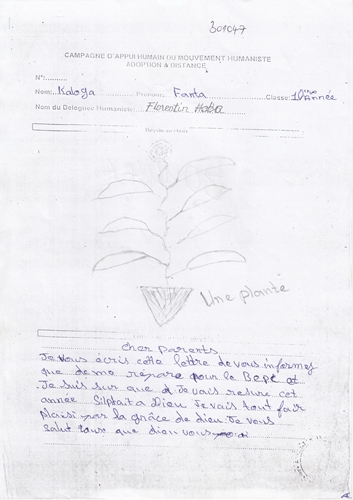 301047
CAMPAGNE D'APPUI HUMAIN DU MOUVEMENT HUMANISTE
ADOPTION A DISTANCE
N°:
Nom: Kaloga Prénom: Fanta Classe: 10ème Année
Nom du Délégué Humaniste: Florentin
Une plante
Cher parents
Je vous écris cette lettre de vous informes
que de me prépare pour le Bepc et
Je suis sur que Je vais reture cet
année Silptait a Dieu Je vais tout fair
plaisi par la grâce de dieu Je vous
salut tour que dieu vous